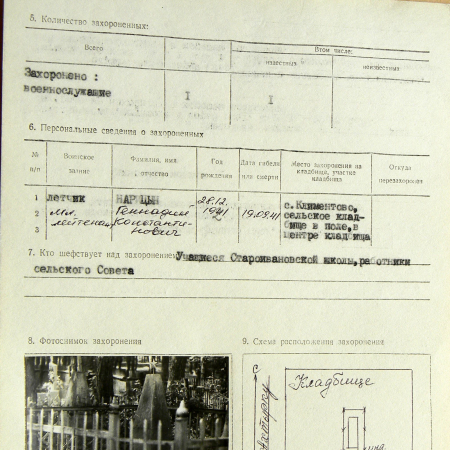 5. Количество захороненных:
Всего
В том числе:
известных
неизвестных
Захоронено :
военнослужащие I I
6. Персональные сведения о захороненных
№ п/п
Воинское звание
Фамилия, имя, отчество
Год рождения
Дата гибели или смерти
Место захоронения на кладбище, участке кладбища
Откуда перезахоронен
1 летчик НАРИЦЫН 28.12. с.Климентово,
2 мл. Геннадий 1921 19.09.41 сельское клад-
лейтенант Константи- бище в поле,в
3 нович центре кладбища
7. Кто шефствует над захоронением Учащиеся Староивановской школы,работники
сельского Совета
8. Фотоснимок захоронения
9. Схема расположения захоронения
С
Кладбище
Ахтырку